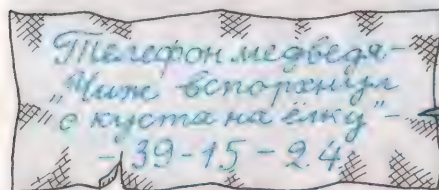 Телефон медведя –
„Чиж вспорхнул
с куста на ёлку" –
– 39-15-24